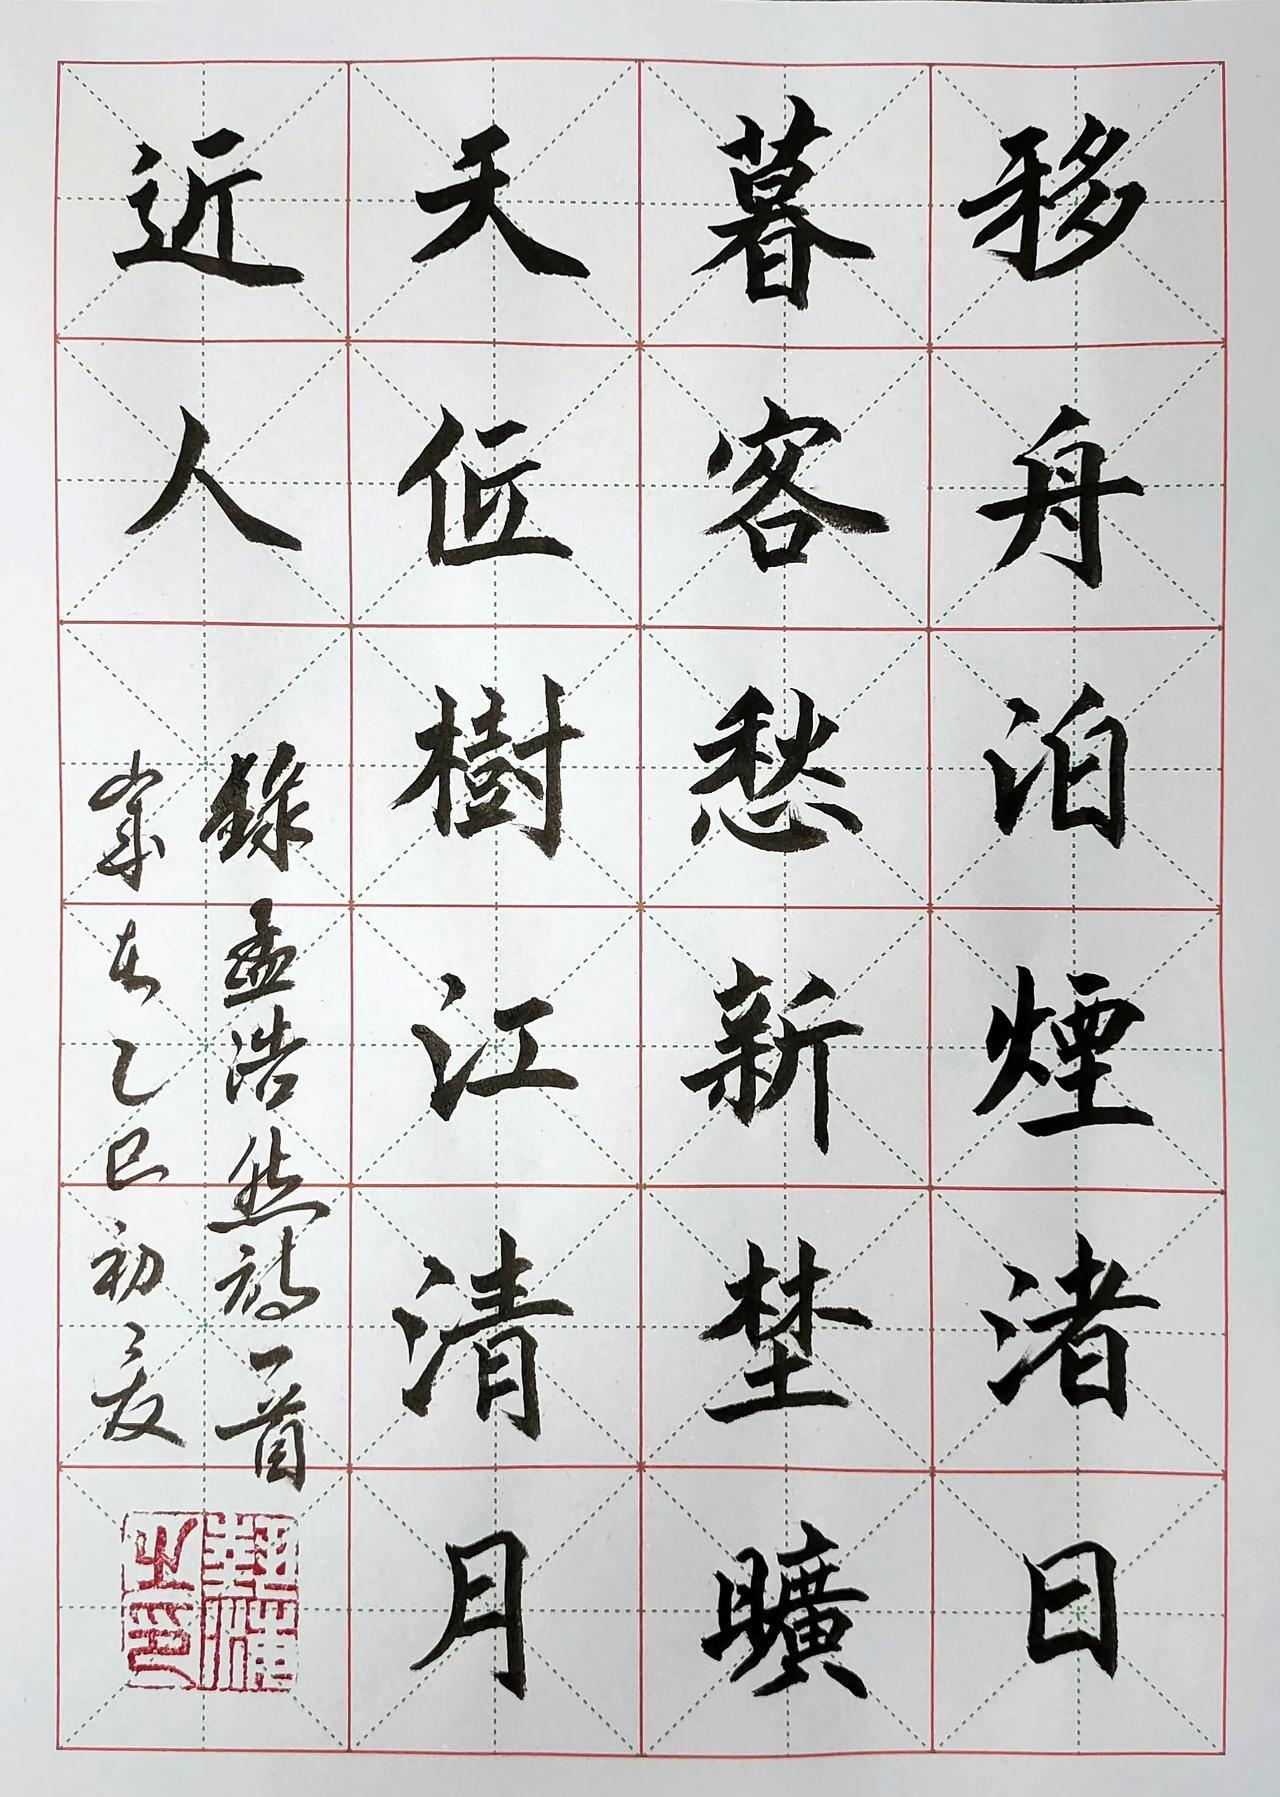 移舟泊煙渚日
暮客愁新埜曠
天伍樹江清月
近人
錄孟浩然詩一首
歲在乙巳初夏